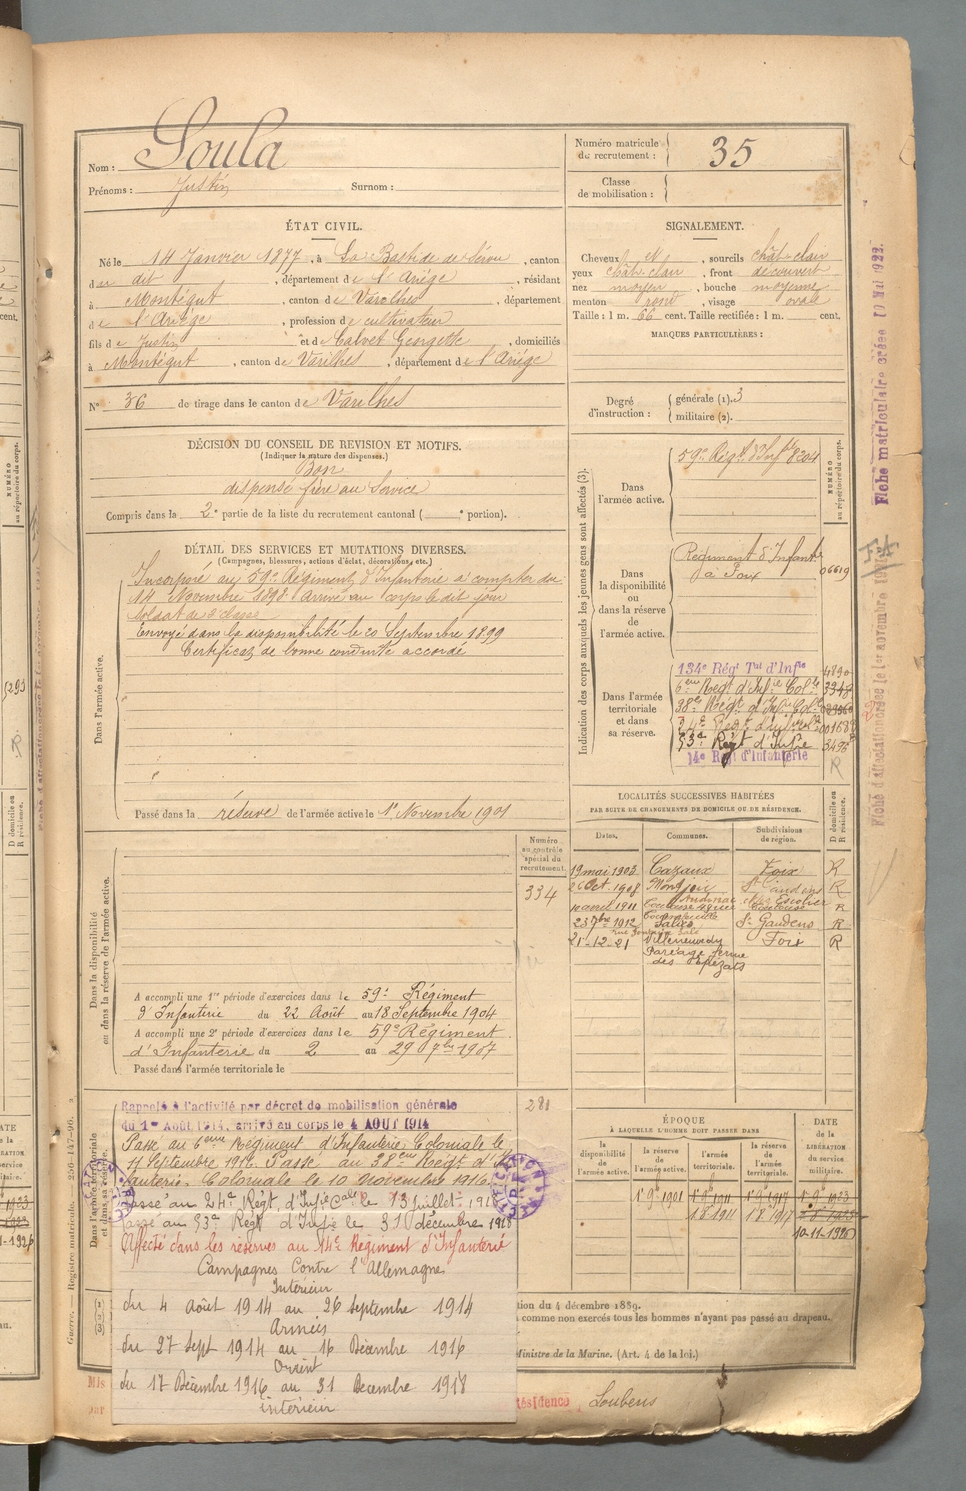 Nom : Soula
Prénoms : Justin Surnom :
Numéro matricule de recrutement : 35
Classe de mobilisation :
ÉTAT CIVIL.
Né le 14 Janvier 1877, à La Bastide de Sérou, canton
du dit, département de l'Ariége, résidant
à Montégut, canton de Varilhes, département
de l'Ariége, profession de cultivateur
fils de Justin et de Calvet Georgette, domiciliés
à Montégut, canton de Varilhes, département de l'Ariége
N° 36 de tirage dans le canton de Varilhes
SIGNALEMENT.
Cheveux et, sourcils chât-clair
yeux chât-clair, front découvert
nez moyen, bouche moyenne
menton rond, visage ovale
Taille : 1 m. 66 cent. Taille rectifiée : 1 m. cent.
MARQUES PARTICULIÈRES :
Degré d'instruction : générale (1). 3
militaire (2).
DÉCISION DU CONSEIL DE REVISION ET MOTIFS.
(Indiquer la nature des dispenses.)
Bon
dispensé frère au Service
Compris dans la 2e partie de la liste du recrutement cantonal ( e portion).
DÉTAIL DES SERVICES ET MUTATIONS DIVERSES.
(Campagnes, blessures, actions d'éclat, décorations, etc.)
Dans l'armée active.
Incorporé au 59e Régiment d'Infanterie à compter du
14 Novembre 1898. Arrivé au corps le dit jour
Soldat de 2e classe
Envoyé dans la disponibilité le 20 Septembre 1899
Certificat de bonne conduite accordé
Passé dans la réserve de l'armée active le 1er Novembre 1901
Indication des corps auxquels les jeunes gens sont affectés (3).
NUMÉRO au répertoire du corps.
Dans l'armée active.
59e Régt d'Infrie 8204
Dans la disponibilité ou dans la réserve de l'armée active.
Régiment d'Infantie
à Foix 06619
Dans l'armée territoriale et dans sa réserve.
134e Régt Tal d'Infie 4890
6eme Régt d'Infie Colle 3348
38e Régt d'Infie Colle
24e Régt d'Infie Cle 001688
53e Régt d'Infie 3496
14e Régt d'Infanterie R
LOCALITÉS SUCCESSIVES HABITÉES
PAR SUITE DE CHANGEMENTS DE DOMICILE OU DE RÉSIDENCE.
Dates. Communes. Subdivisions de région. D domicile ou R résidence.
19 mai 1903 Cazaux Foix R
26 Oct. 1908 Montjou St Gaudens R
10 avril 1911 Toulouse R
23 7bre 1912 Salies St Gaudens R
21-12-21 Villeneuve du Foix R
Paréage ferme
des
Dans la disponibilité ou dans la réserve de l'armée active.
Numéro au contrôle spécial du recrutement.
334
A accompli une 1re période d'exercices dans le 59e Régiment
d'Infanterie du 22 Août au 18 Septembre 1904
A accompli une 2e période d'exercices dans le 59e Régiment
d'Infanterie du 2 au 29 7bre 1907
Passé dans l'armée territoriale le
281
Dans l'armée territoriale et dans sa réserve.
Rappelé à l'activité par décret de mobilisation générale
du 1er Août 1914, arrivé au corps le 4 AOUT 1914
Passé au 6eme Régiment d'Infanterie Coloniale le
Passé au 38eme Régt d'In
fanterie Coloniale le 10 novembre 1916.
Passé au 24e Régt d'Infie Cale le 13 juillet 191
Passé au 53e Régt d'Infie le 31 décembre 1918
Affecté dans les réserves au 14e Régiment d'Infanterie
Campagnes Contre l'Allemagne
Intérieur
du 4 août 1914 au 26 septembre 1914
Armées
du 27 sept 1914 au 16 Décembre 1916
Orient
du 17 Décembre 1916 au 31 Decembre 1918
intérieur
ÉPOQUE
À LAQUELLE L'HOMME DOIT PASSER DANS
la disponibilité de l'armée active.
la réserve de l'armée active.
l'armée territoriale.
la réserve de l'armée territoriale.
DATE de la LIBÉRATION du service militaire.
1er 9bre 1901 1er 9bre 1911 1er 9bre 1917 1er 9bre 1923
1.8.1911 1.8.1917
10-11-1926
tion du 4 décembre 1889.
comme non exercés tous les hommes n'ayant pas passé au drapeau.
Ministre de la Marine. (Art. 4 de la loi.)
résidence Loubens
Guerre. — Registre matricule. — 256-147-96.
Fiche matriculaire créée 10 Mai 1922.